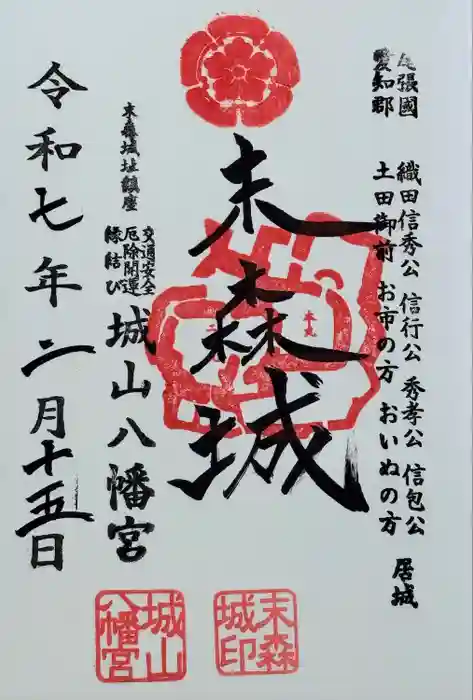 尾張國 織田信秀公 信行公 秀孝公 信包公 居城
愛知郡 土田御前 お市の方 おいぬの方
末森城
末森城址鎮座
交通安全
厄除開運
縁結び
城山八幡宮
令和七年二月十五日
末森
城印
城山
八幡宮